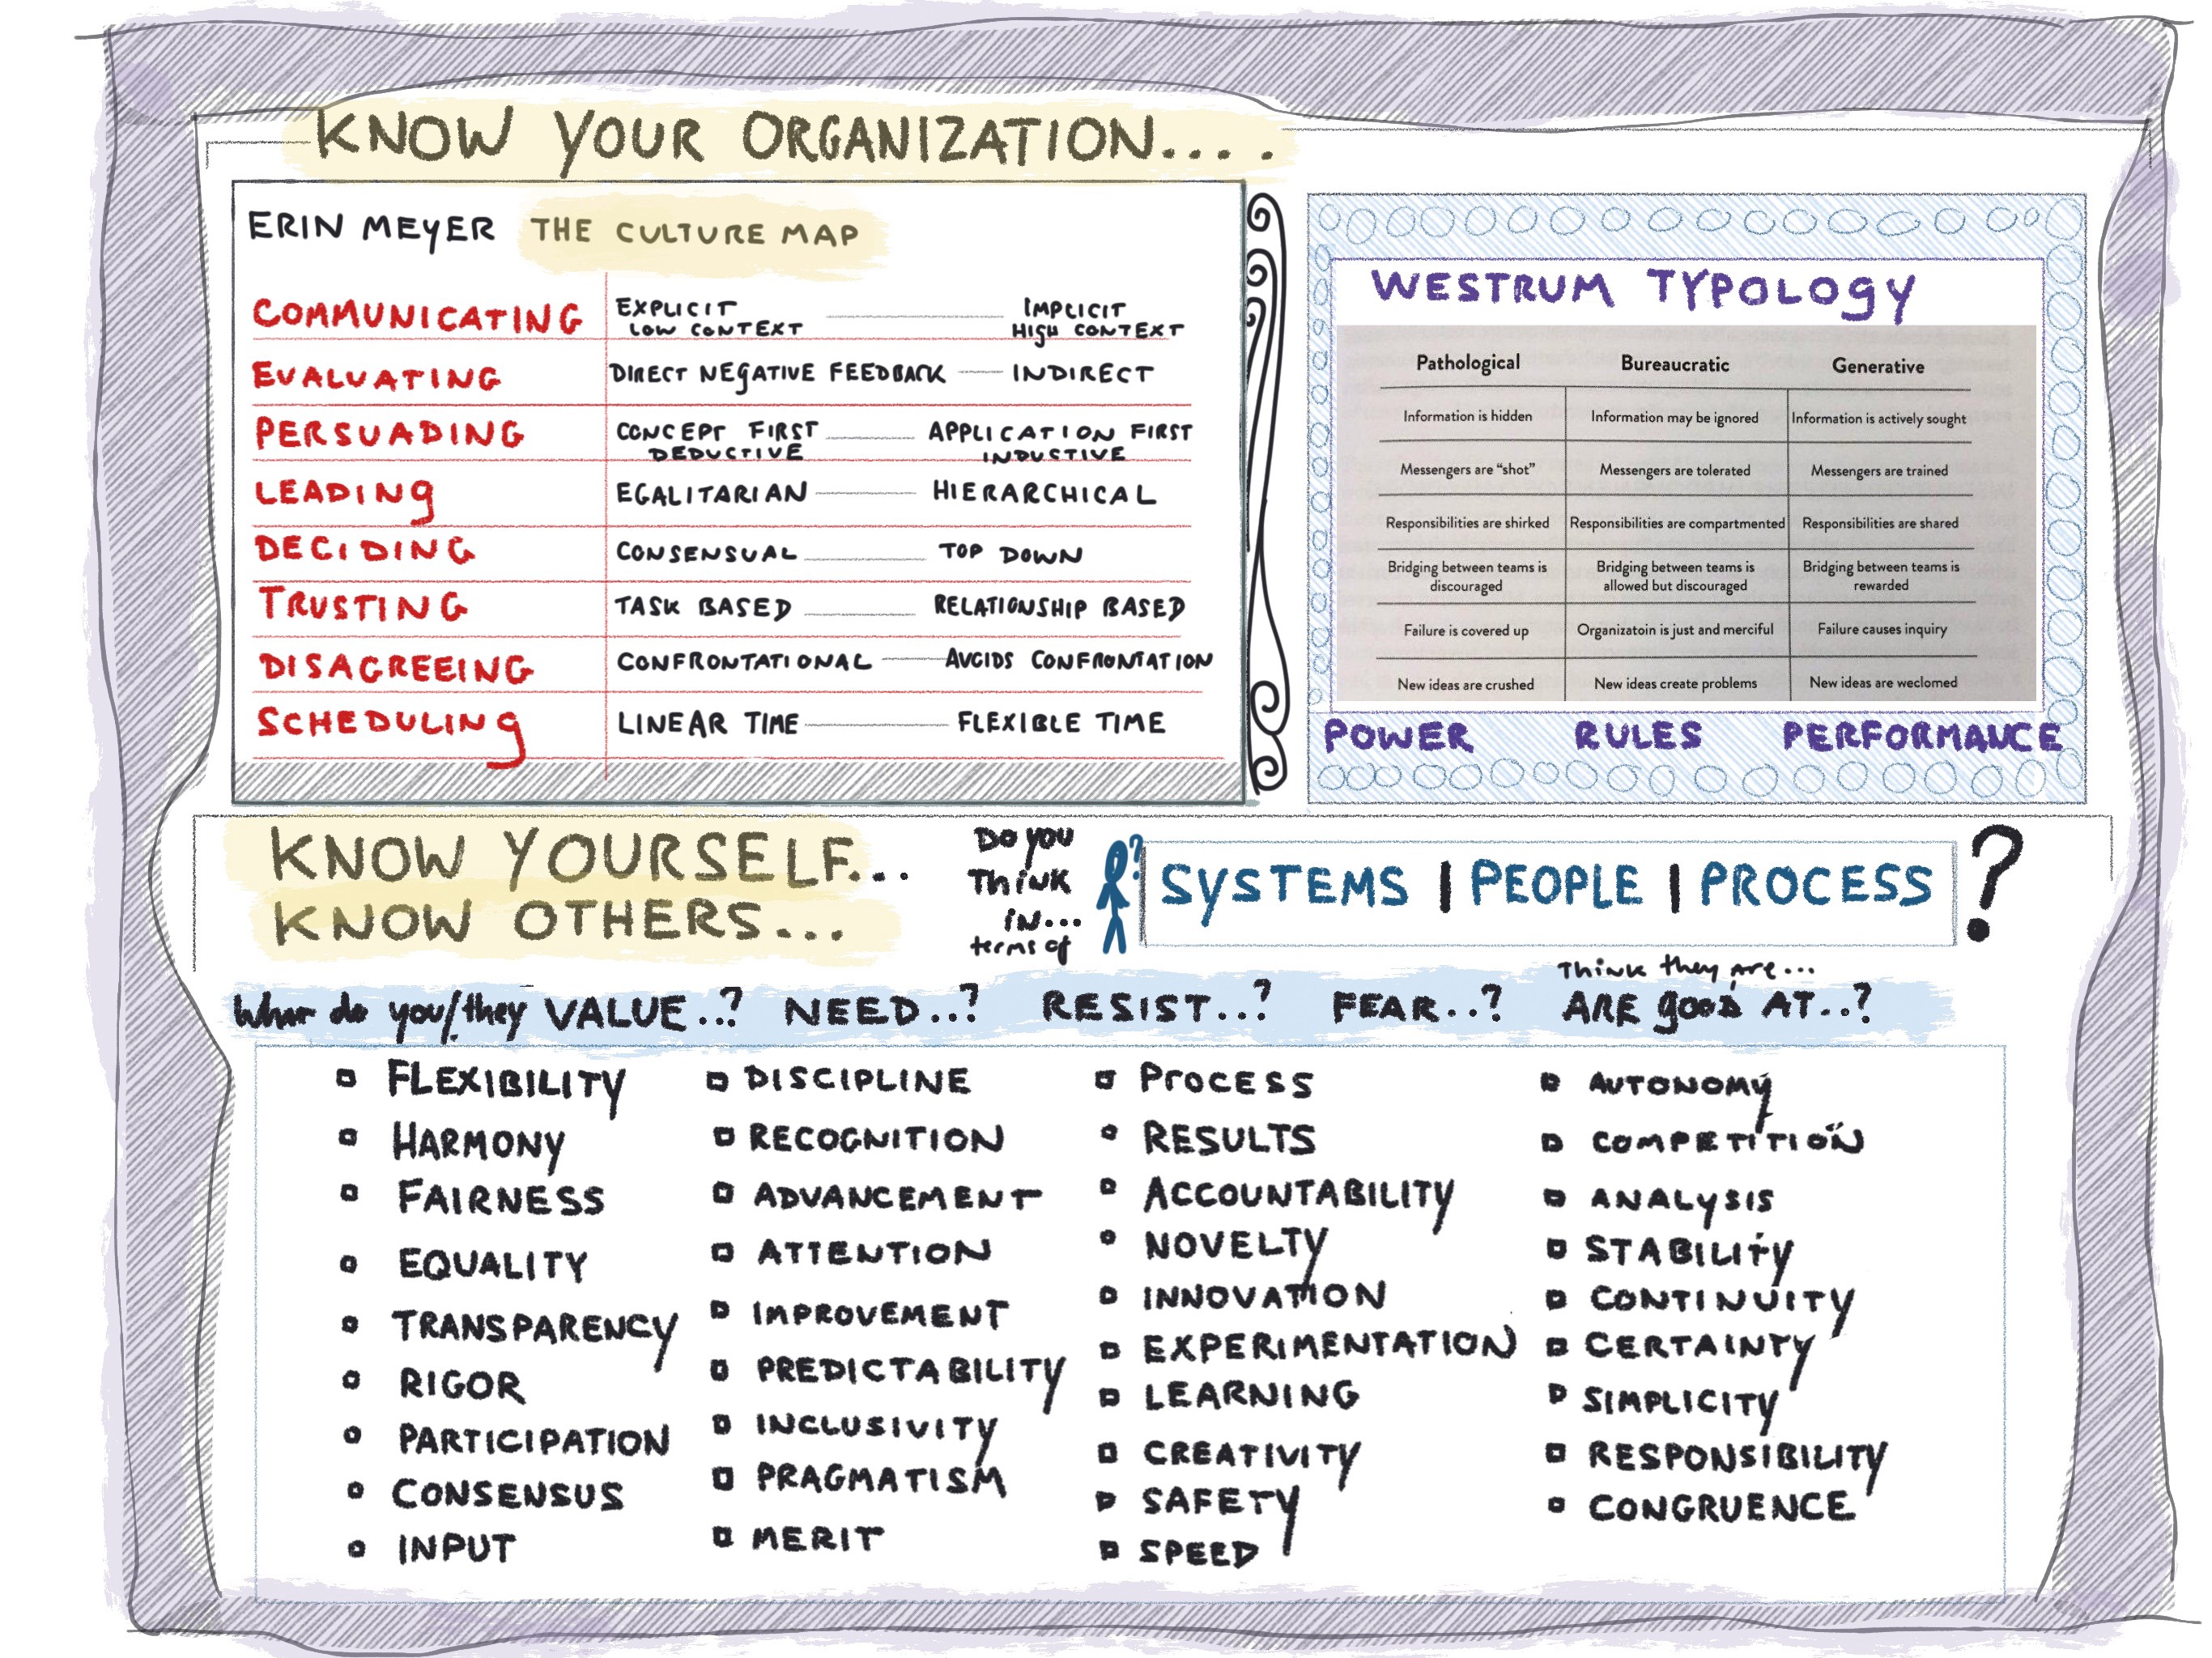 KNOW YOUR ORGANIZATION... .
ERIN MEYER THE CULTURE MAP
COMMUNICATING EXPLICIT LOW CONTEXT IMPLICIT HIGH CONTEXT
EVALUATING DIRECT NEGATIVE FEEDBACK INDIRECT
PERSUADING CONCEPT FIRST DEDUCTIVE APPLICATION FIRST INDUCTIVE
LEADING EGALITARIAN HIERARCHICAL
DECIDING CONSENSUAL TOP DOWN
TRUSTING TASK BASED RELATIONSHIP BASED
DISAGREEING CONFRONTATIONAL AVOIDS CONFRONTATION
SCHEDULING LINEAR TIME FLEXIBLE TIME
WESTRUM TYPOLOGY
Pathological Bureaucratic Generative
Information is hidden Information may be ignored Information is actively sought
Messengers are “shot” Messengers are tolerated Messengers are trained
Responsibilities are shirked Responsibilities are compartmented Responsibilities are shared
Bridging between teams is discouraged Bridging between teams is allowed but discouraged Bridging between teams is rewarded
Failure is covered up Organizatoin is just and merciful Failure causes inquiry
New ideas are crushed New ideas create problems New ideas are weclomed
POWER RULES PERFORMANCE
KNOW YOURSELF...
KNOW OTHERS...
DO YOU
THINK
IN...
terms of
? SYSTEMS | PEOPLE | PROCESS ?
Think they are...
What do you/they VALUE..? NEED..? RESIST..? FEAR..? ARE good AT..?
FLEXIBILITY
HARMONY
FAIRNESS
EQUALITY
TRANSPARENCY
RIGOR
PARTICIPATION
CONSENSUS
INPUT
DISCIPLINE
RECOGNITION
ADVANCEMENT
ATTENTION
IMPROVEMENT
PREDICTABILITY
INCLUSIVITY
PRAGMATISM
MERIT
PROCESS
RESULTS
ACCOUNTABILITY
NOVELTY
INNOVATION
EXPERIMENTATION
LEARNING
CREATIVITY
SAFETY
SPEED
AUTONOMY
COMPETITION
ANALYSIS
STABILITY
CONTINUITY
CERTAINTY
SIMPLICITY
RESPONSIBILITY
CONGRUENCE